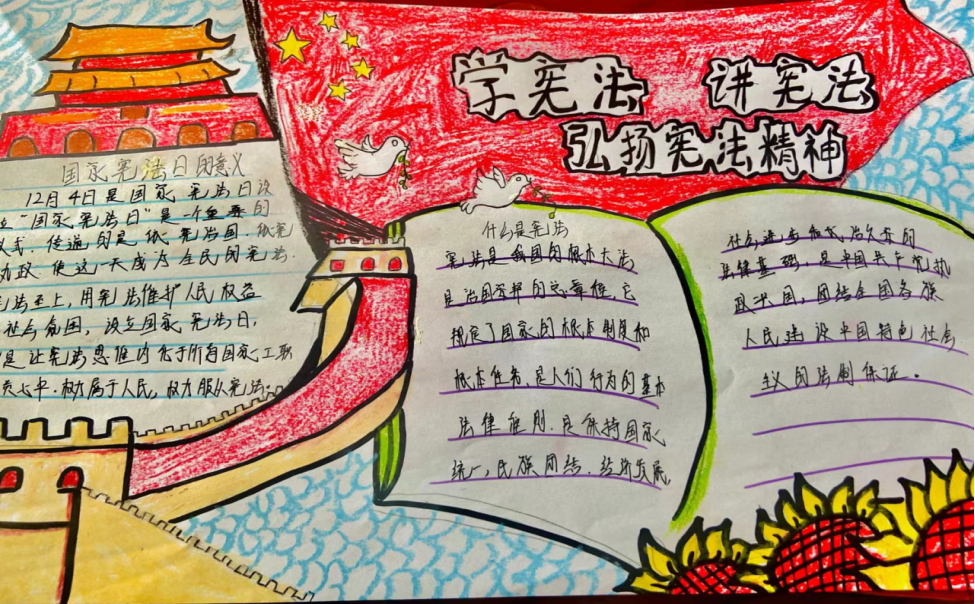 学宪法 讲宪法
弘扬宪法精神
国家宪法日的意义
12月4日是国家宪法日设
立"国家宪法日"是一个重要的
仪式,传递的是依宪治国,依宪
执政 使这一天成为全民的宪法.
宪法至上,用宪法维护人民权益
社会
国,设立国家宪法日,
是让宪法思维内化于所有国家工职
心中.权力属于人民,权力服从宪法.
什么是宪法
宪法是我国的根本大法
是治国安邦的总章程,它
规定了国家的根本制度和
根本任务,是人们行为的基本
法律准则,是保持国家
统一,民族团结,经济发展,
社会进步和长治久安的
法律基础,是中国共产党执
政兴国,团结全国各族
人民建设中国特色社会
主义的法制保证.